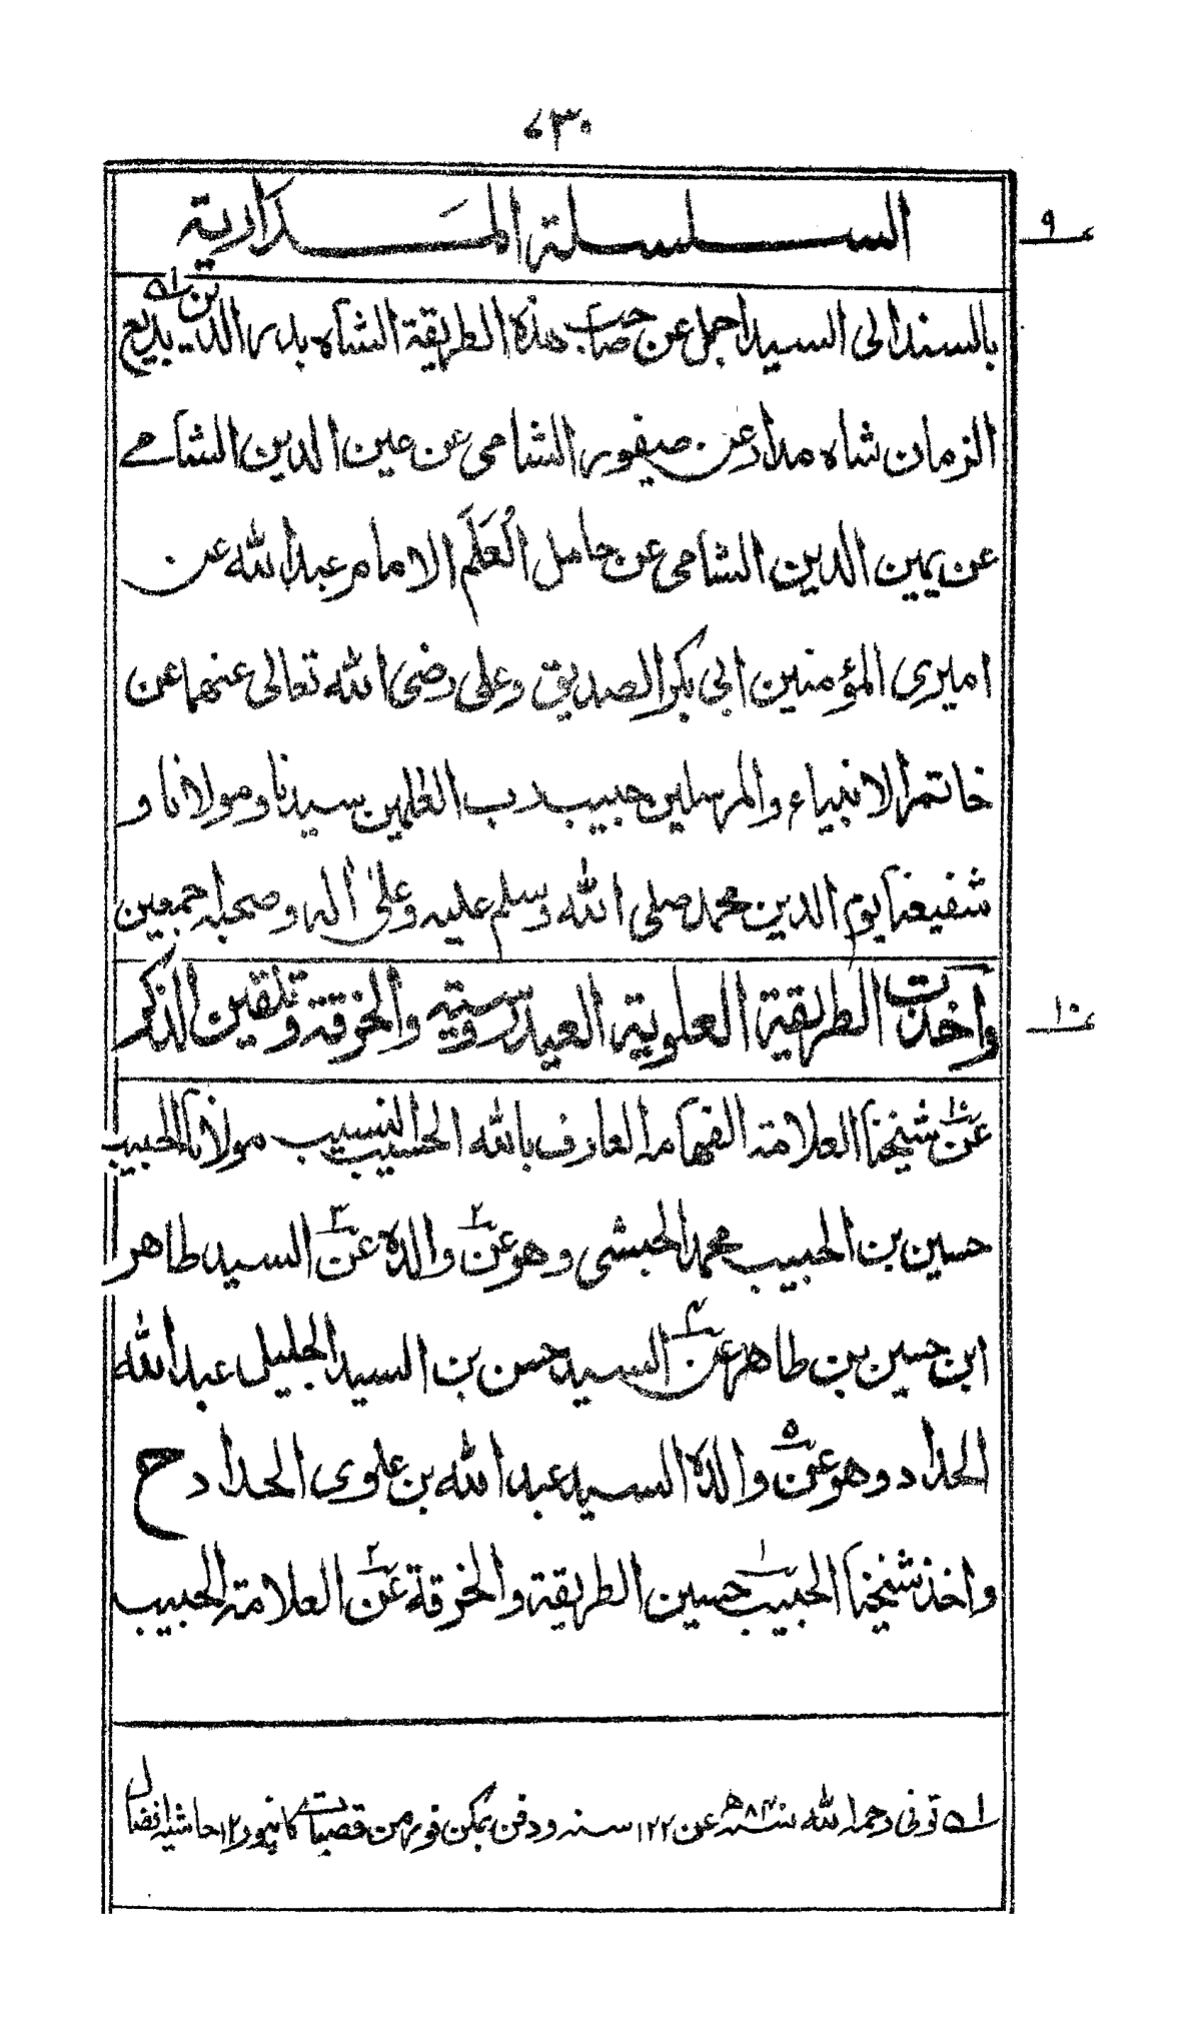 ٧٣٠
السلسلة المَدارية
٩
بالسند الى السيد اجمل عن صاحب هذه الطريقة الشاه بدر الدين ١ه بديع
الزمان شاه مدار عن صيفور الشامى عن عين الدين الشامے
عن يمين الدين الشامى عن حامل الْعَلَم الامام عبد الله عن
اميرى المؤمنين ابى بكر الصديق وعلى رضى الله تعالى عنهما عن
خاتم الانبياء والمرسلين حبيب رب العلمين سيدنا ومولانا و
شفيعنا يوم الدين محمد صلى الله وسلم عليه وعلىٰ اٰله وصحبه اجمعين
واخذت الطريقة العلوية العيدروسية والخرقة وتلقين الذكر
١٠
عن ١ شيخنا العلامة الفهامة العارف بالله الحسيب النسيب مولانا الحبيب
حسين بن الحبيب محمد الحبشى وهو عن ٢ والده عن ٣ السيد طاهر
ابن حسين بن طاهر عن ٤ السيد حسن بن السيد الجليل عبد الله
الحداد وهو عن ٥ والده السيد عبد الله بن علوى الحداد ح
واخذ شيخنا الحبيب ١ حسين الطريقة والخرقة عن ٢ العلامة الحبيب
١ه توفى رحمه الله سنة ٨٤٠ه عن ١٢٢ سنة ودفن بمكن فور من قصبات كانپور ١٢ حاشيه افضال